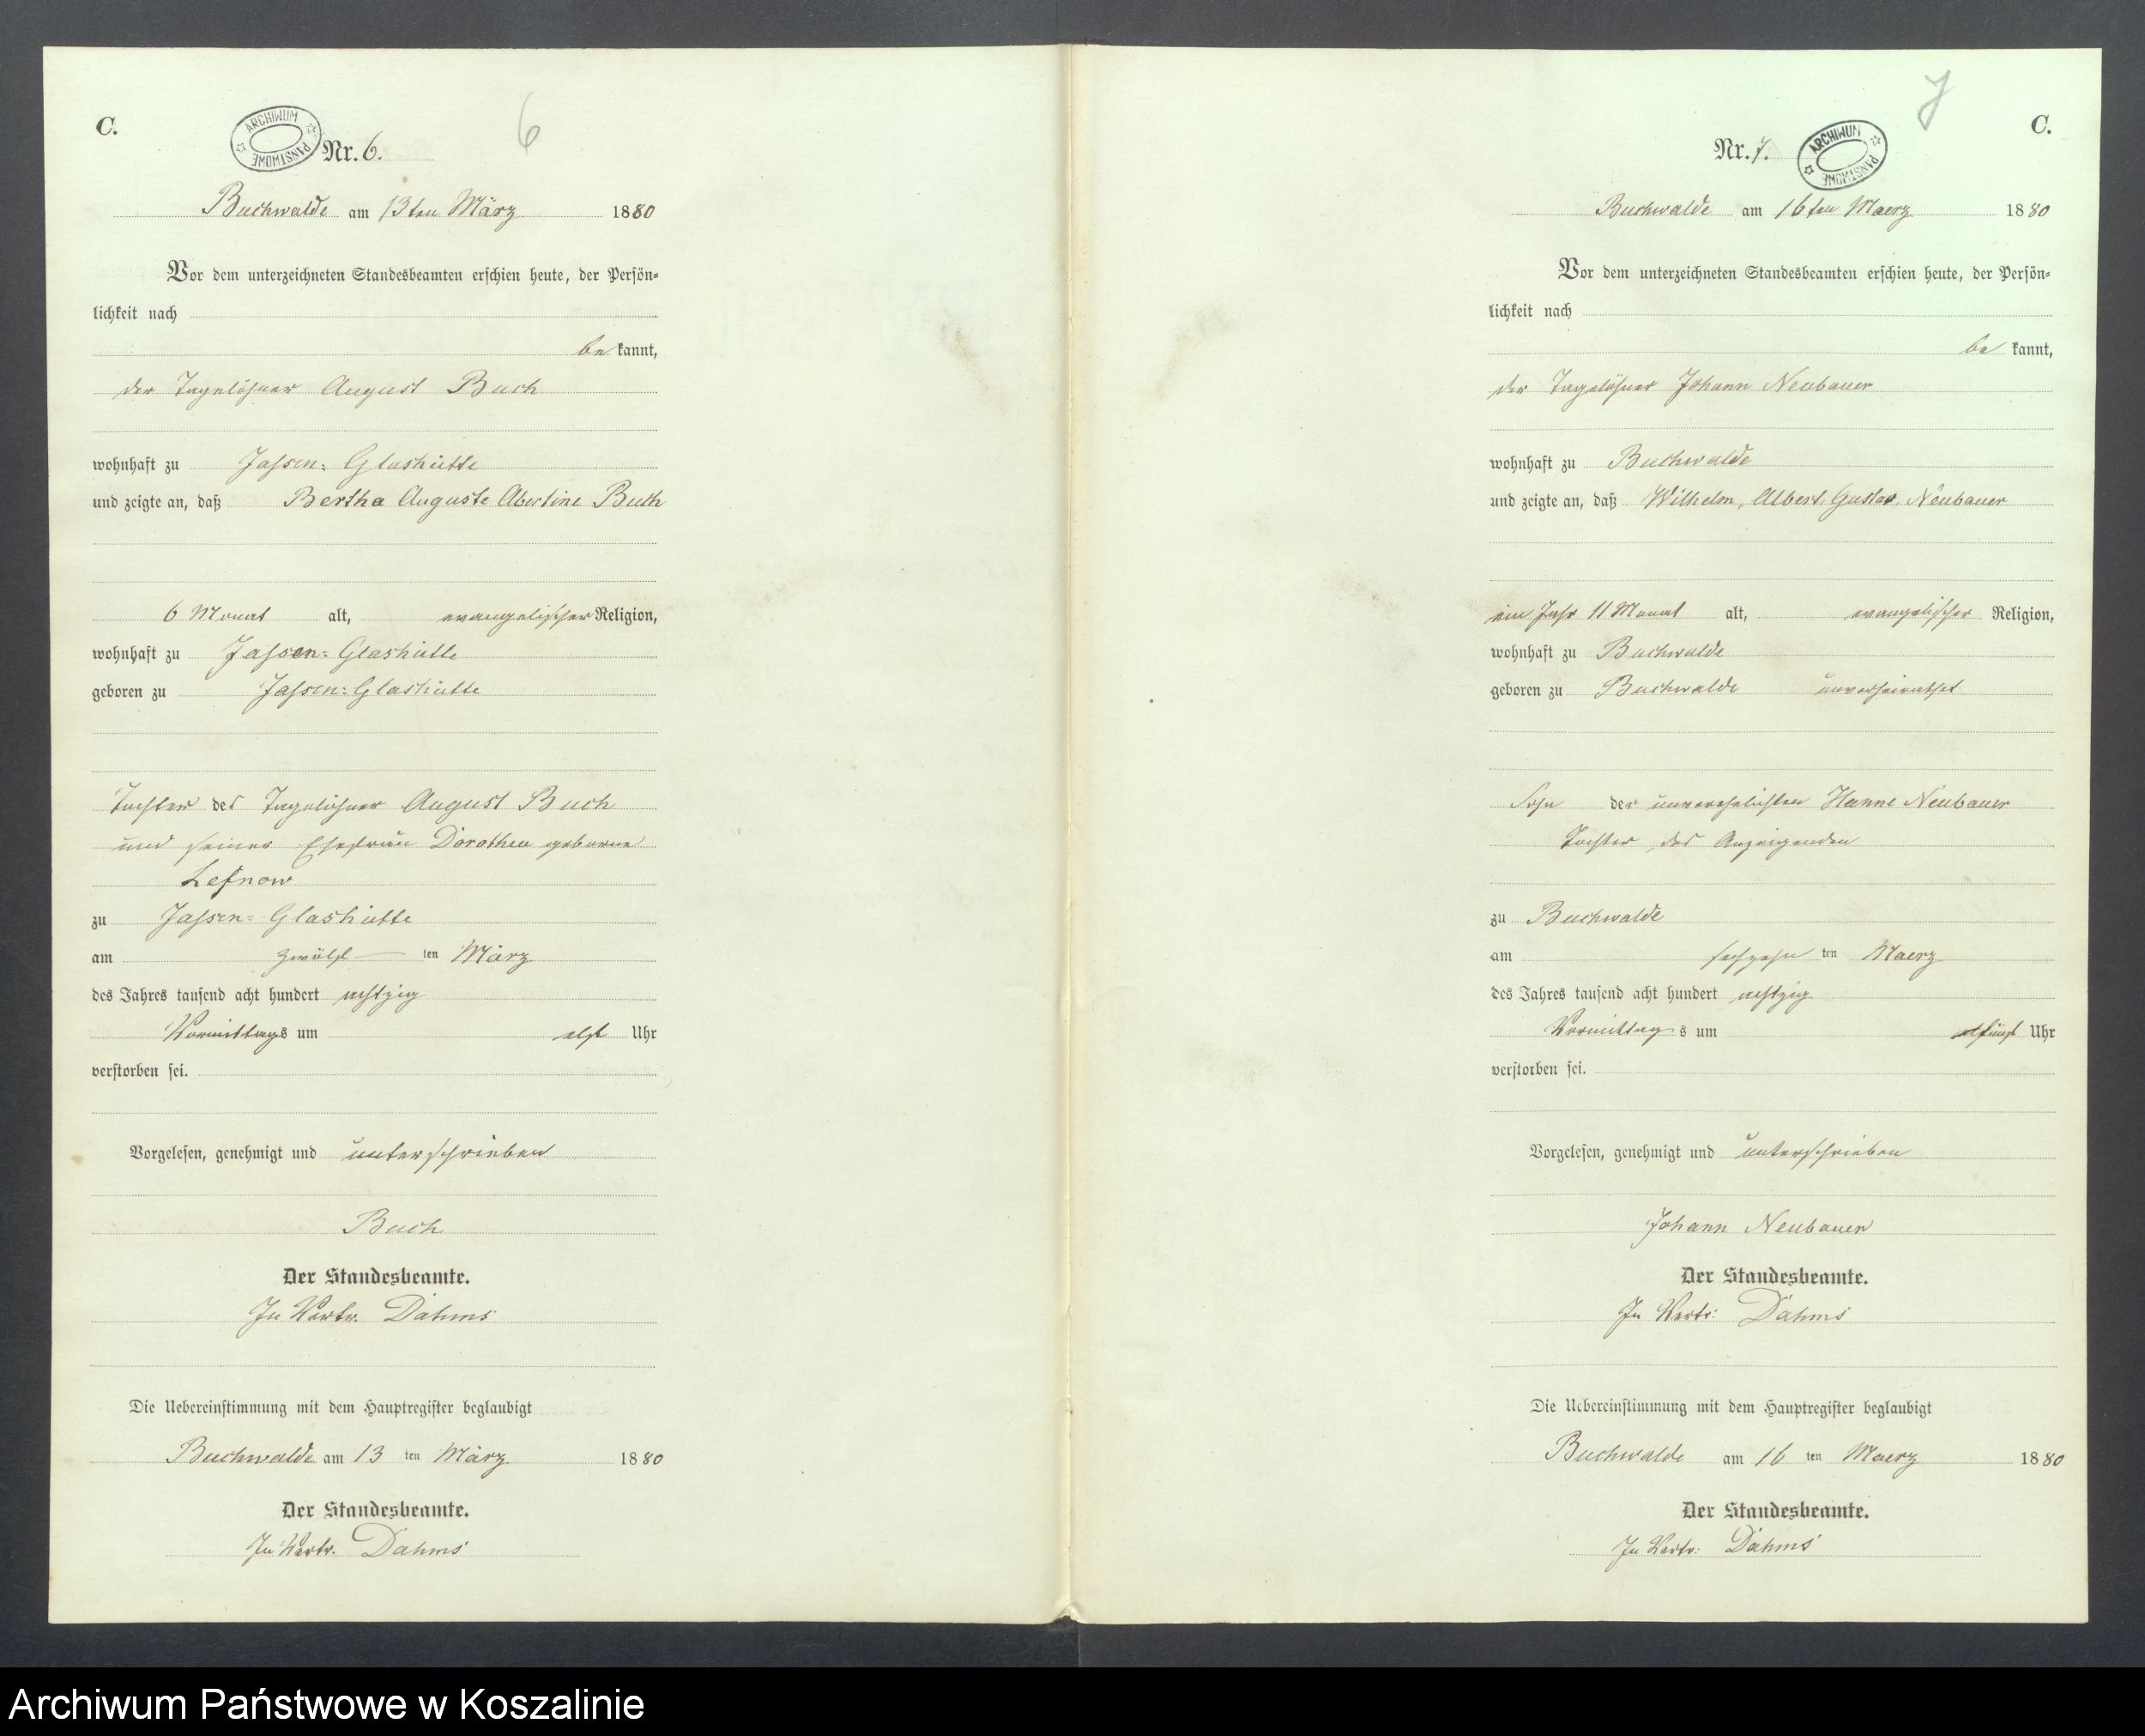 C.
ARCHIWUM PAŃSTWOWE
6
Nr. 6.
Buchwalde am 13ten März 1880
Vor dem unterzeichneten Standesbeamten erschien heute, der Persön=
lichkeit nach
be kannt,
der Tagelöhner August Buch
wohnhaft zu Jassen=Glashütte
und zeigte an, daß Bertha Auguste Abertine Buch
6 Monat alt, evangelischer Religion,
wohnhaft zu Jassen=Glashütte
geboren zu Jassen=Glashütte
Tochter des Tagelöhner August Buch
und seiner Ehefrau Dorothea geborne
zu Jassen=Glashütte
am zwölf ten März
des Jahres tausend acht hundert achtzig
Vormittags um elf Uhr
verstorben sei.
Vorgelesen, genehmigt und unterschrieben
Buch
Der Standesbeamte.
In Vertr. Dahms
Die Uebereinstimmung mit dem Hauptregister beglaubigt
Buchwalde am 13 ten März 1880
Der Standesbeamte.
In Vertr. Dahms
7
C.
Nr. 7.
ARCHIWUM PAŃSTWOWE
Buchwalde am 16ten Maerz 1880
Vor dem unterzeichneten Standesbeamten erschien heute, der Persön=
lichkeit nach
be kannt,
der Tagelöhner Johann Neubauer
wohnhaft zu Buchwalde
und zeigte an, daß Wilhelm, Albert, Gustav, Neubauer
ein Jahr 11 Monat alt, evangelischer Religion,
wohnhaft zu Buchwalde
geboren zu Buchwalde unverheirathet
Sohn der unverehelichten Hanne Neubauer
Tochter des Anzeigenden
zu Buchwalde
am sechzehn ten Maerz
des Jahres tausend acht hundert achtzig
Vormittags um fünf Uhr
verstorben sei.
Vorgelesen, genehmigt und unterschrieben
Johann Neubauer
Der Standesbeamte.
In Vertr: Dahms
Die Uebereinstimmung mit dem Hauptregister beglaubigt
Buchwalde am 16 ten Maerz 1880
Der Standesbeamte.
In Vertr: Dahms
Archiwum Państwowe w Koszalinie